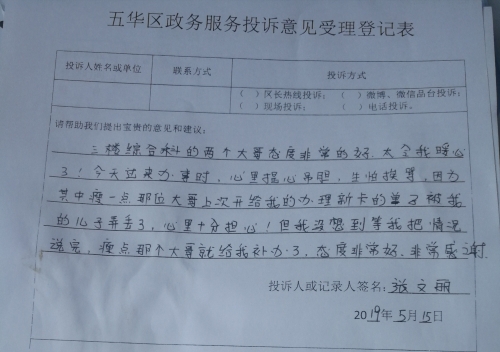 五华区政务服务投诉意见受理登记表
投诉人姓名或单位 联系方式 投诉方式
( )区长热线投诉; ( )微博、微信品台投诉;
( )现场投诉; ( )电话投诉。
请帮助我们提出宝贵的意见和建议:
三楼综合科的两个大哥态度非常的好.太令我暖心
了!今天过来办事时,心里提心吊胆,生怕挨骂,因为
其中瘦一点那位大哥上次开给我的办理新卡的单子被我
的儿子弄丢了,心里十分担心!但我没想到等我把情况
说完,瘦点那个大哥就给我补办了,态度非常好.非常感谢.
投诉人或记录人签名:张文丽
2019年5月15日